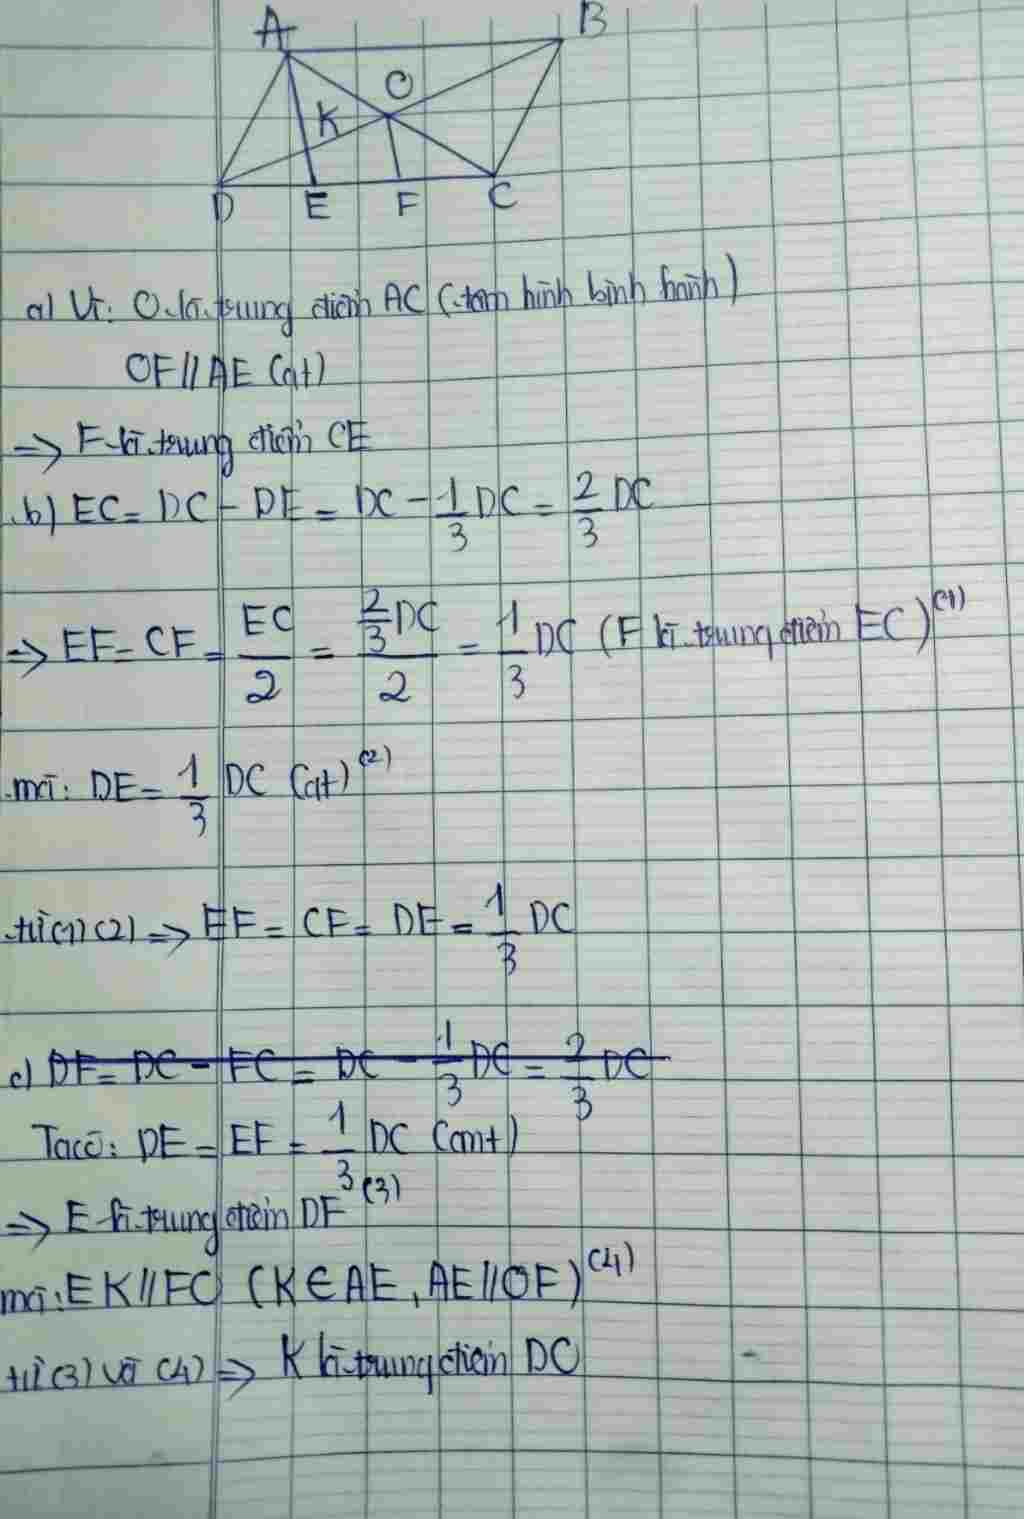 A B
O
K
D E F C
a) Vì: O là trung điểm AC (tâm hình bình hành)
OF // AE (gt)
=> F là trung điểm CE
b) EC = DC - DE = DC - 1/3 DC = 2/3 DC
=> EF = CF = EC/2 = (2/3 DC)/2 = 1/3 DC (F là trung điểm EC) (1)
mà: DE = 1/3 DC (gt) (2)
từ (1) (2) => EF = CF = DE = 1/3 DC
c) DF = DC - FC = DC - 1/3 DC = 2/3 DC
Ta có: DE = EF = 1/3 DC (cmt)
=> E là trung điểm DF (3)
mà: EK // FO (K ∈ AE, AE // OF) (4)
từ (3) và (4) => K là trung điểm DO